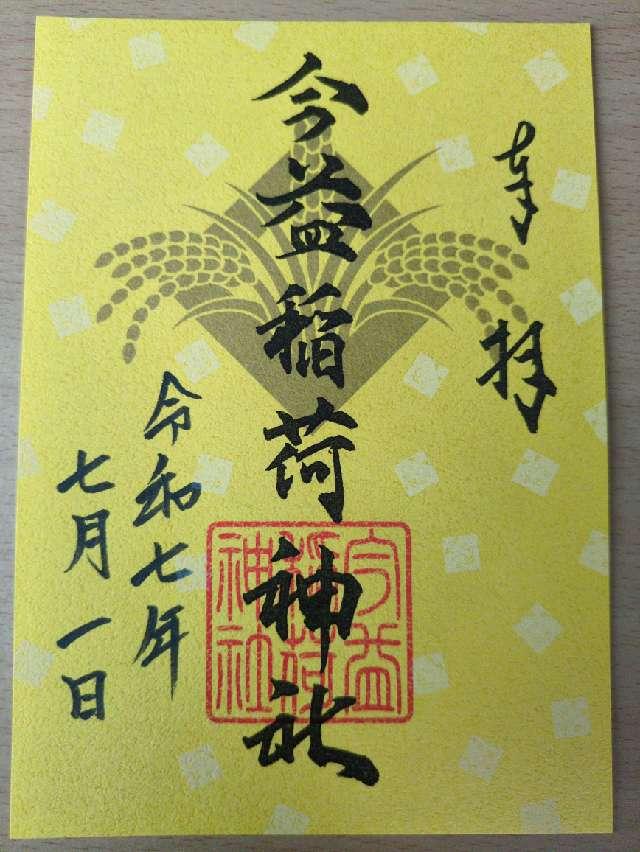 奉拝
今益稲荷神社
今益
稲荷
神社
令和七年
七月一日